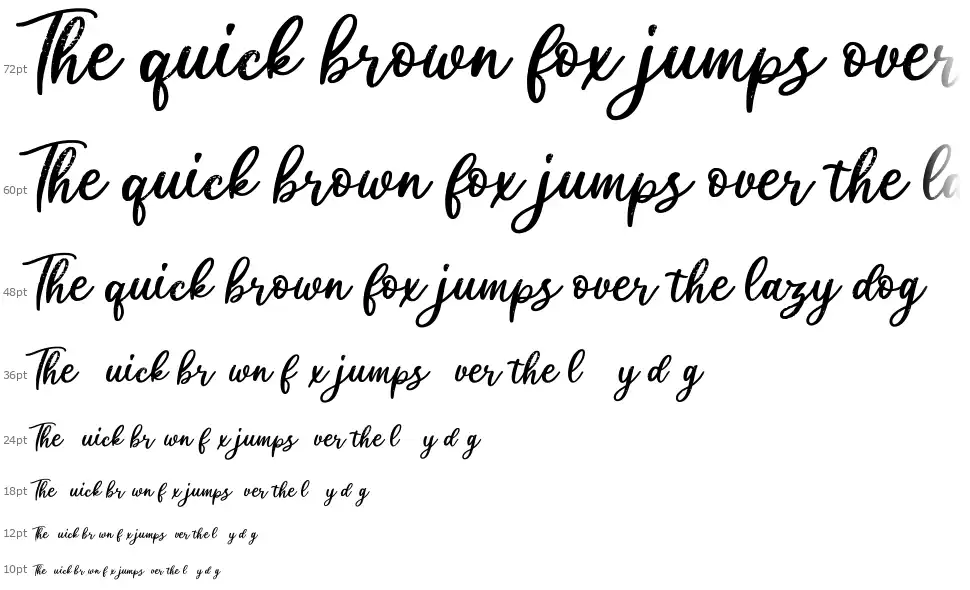 72pt The quick brown fox jumps over
60pt The quick brown fox jumps over the la
48pt The quick brown fox jumps over the lazy dog
36pt The uick br wn f x jumps ver the l y d g
24pt The uick br wn f x jumps ver the l y d g
18pt The uick br wn f x jumps ver the l y d g
12pt The uick br wn f x jumps ver the l y d g
10pt The uick br wn f x jumps ver the l y d g